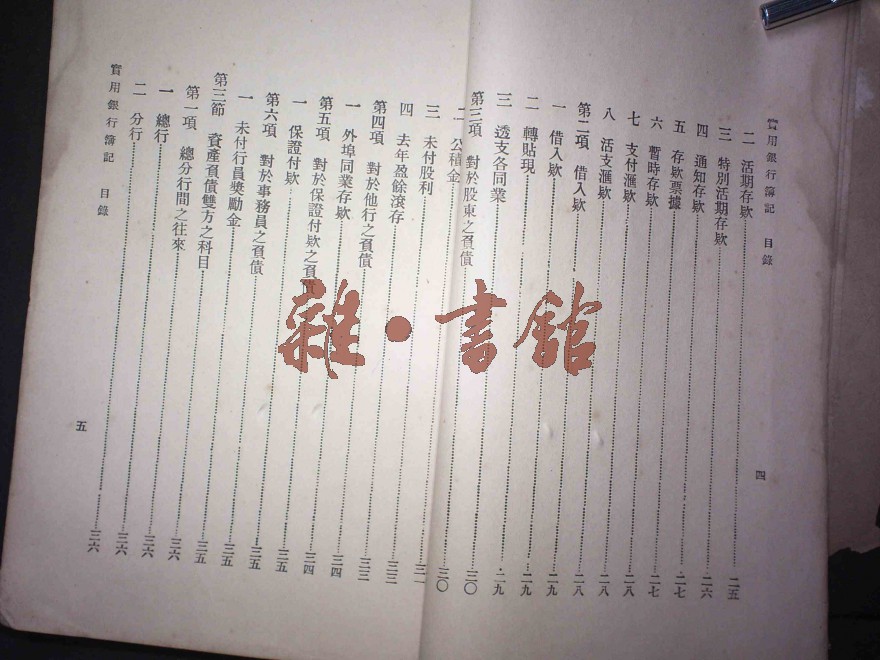 實用銀行簿記 目錄
二 活期存欵 二五
三 特別活期存欵 二六
四 通知存欵 二七
五 存欵票據 二七
六 暫時存欵 二七
七 支付滙欵 二八
八 活支滙欵 二八
第二項 借入欵 二八
一 借入欵 二九
二 轉貼現 二九
三 透支各同業 二九
四
第三項 對於股東之負債 三〇
二 公積金 三〇
三 未付股利
四 去年盈餘滾存 三三
第四項 對於他行之負債 三三
一 外埠同業存欵 三四
第五項 對於保證付欵之負債 三四
一 保證付欵 三五
第六項 對於事務員之負債 三五
一 未付行員獎勵金 三五
第三節 資產負債雙方之科目 三五
第一項 總分行間之往來 三六
一 總行 三六
二 分行 三六
實用銀行簿記 目錄
五
雜·書館